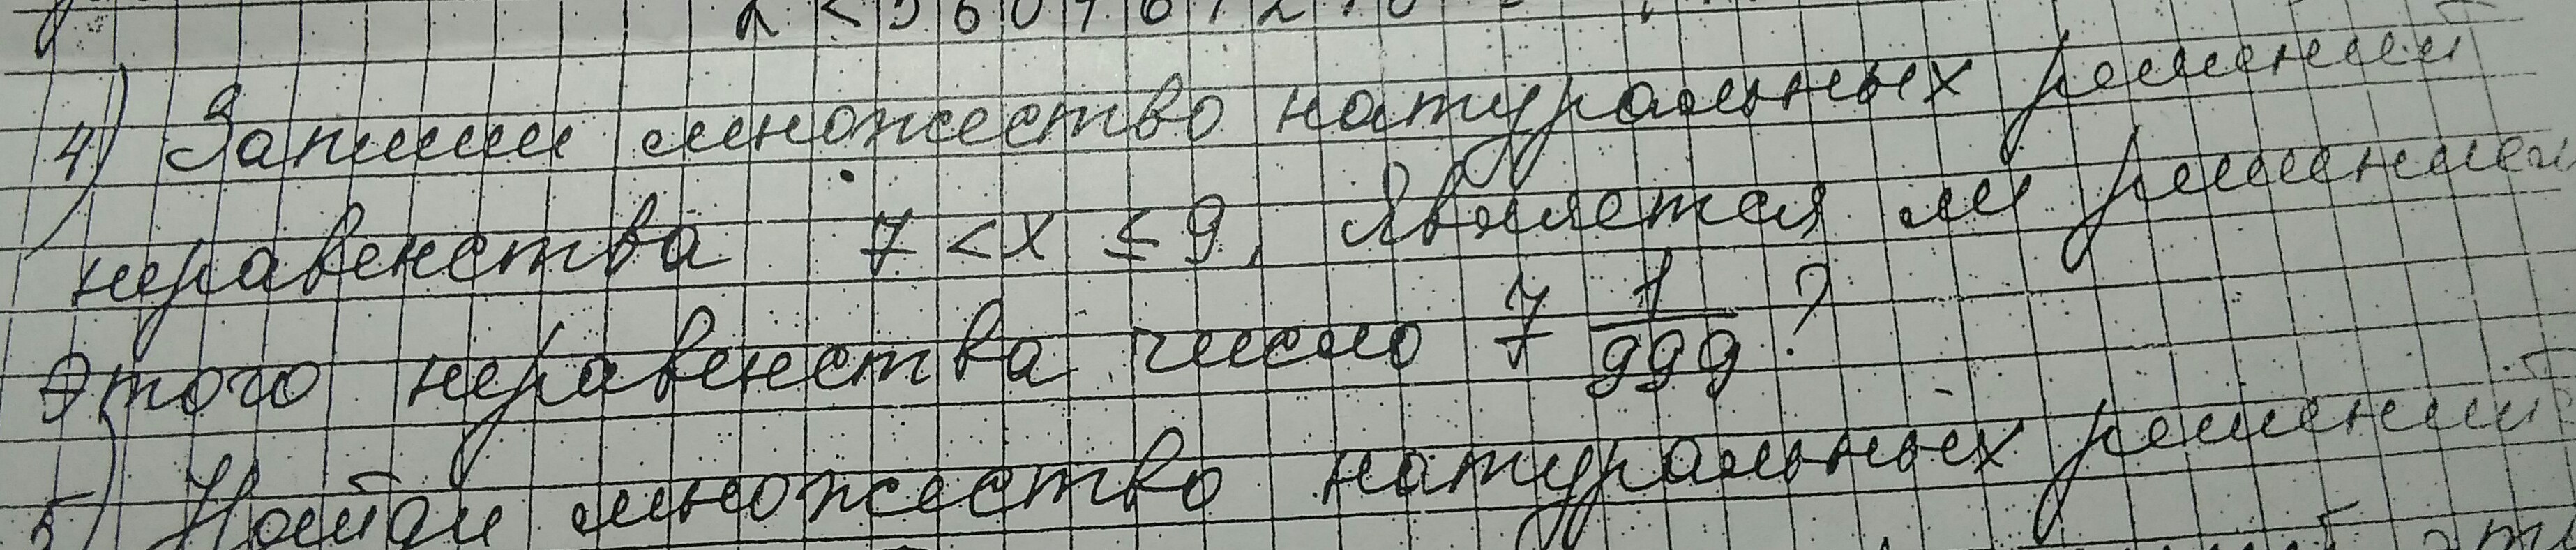 4) Запиши множество натуральных решений
неравенства 7 < x ≤ 9, Является ли решением
этого неравенства число 7 1/999 ?
5) Найди множество натуральных решений